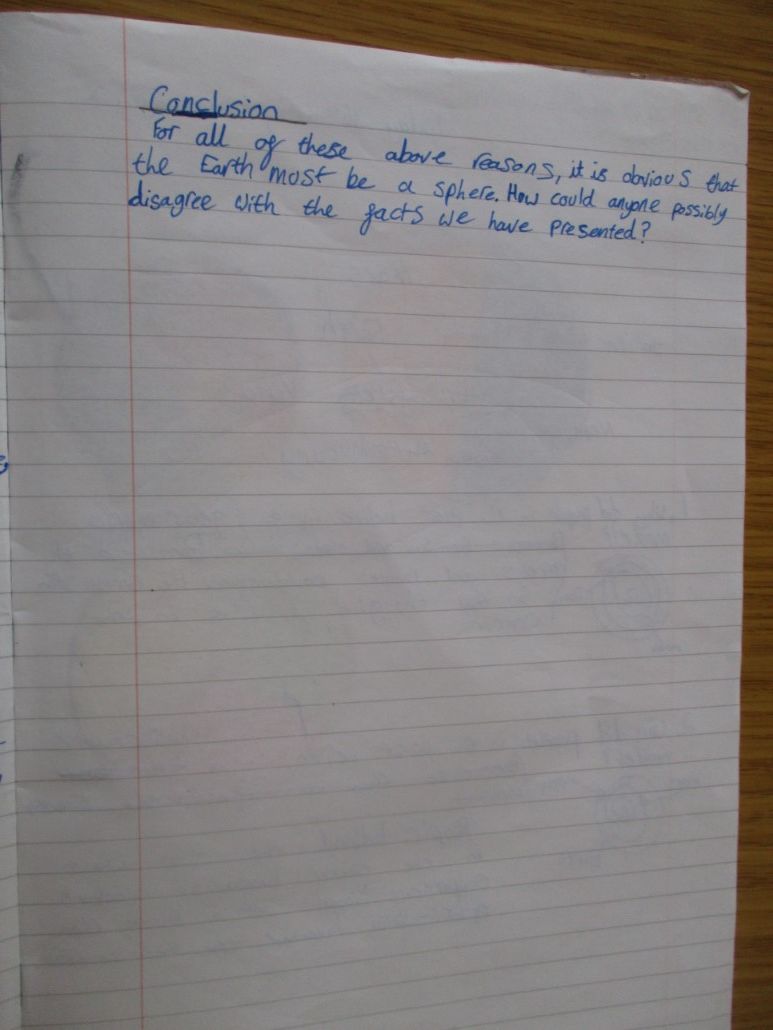 Conclusion
For all of these above reasons, it is obvious that
the Earth must be a sphere. How could anyone possibly
disagree with the facts we have presented?